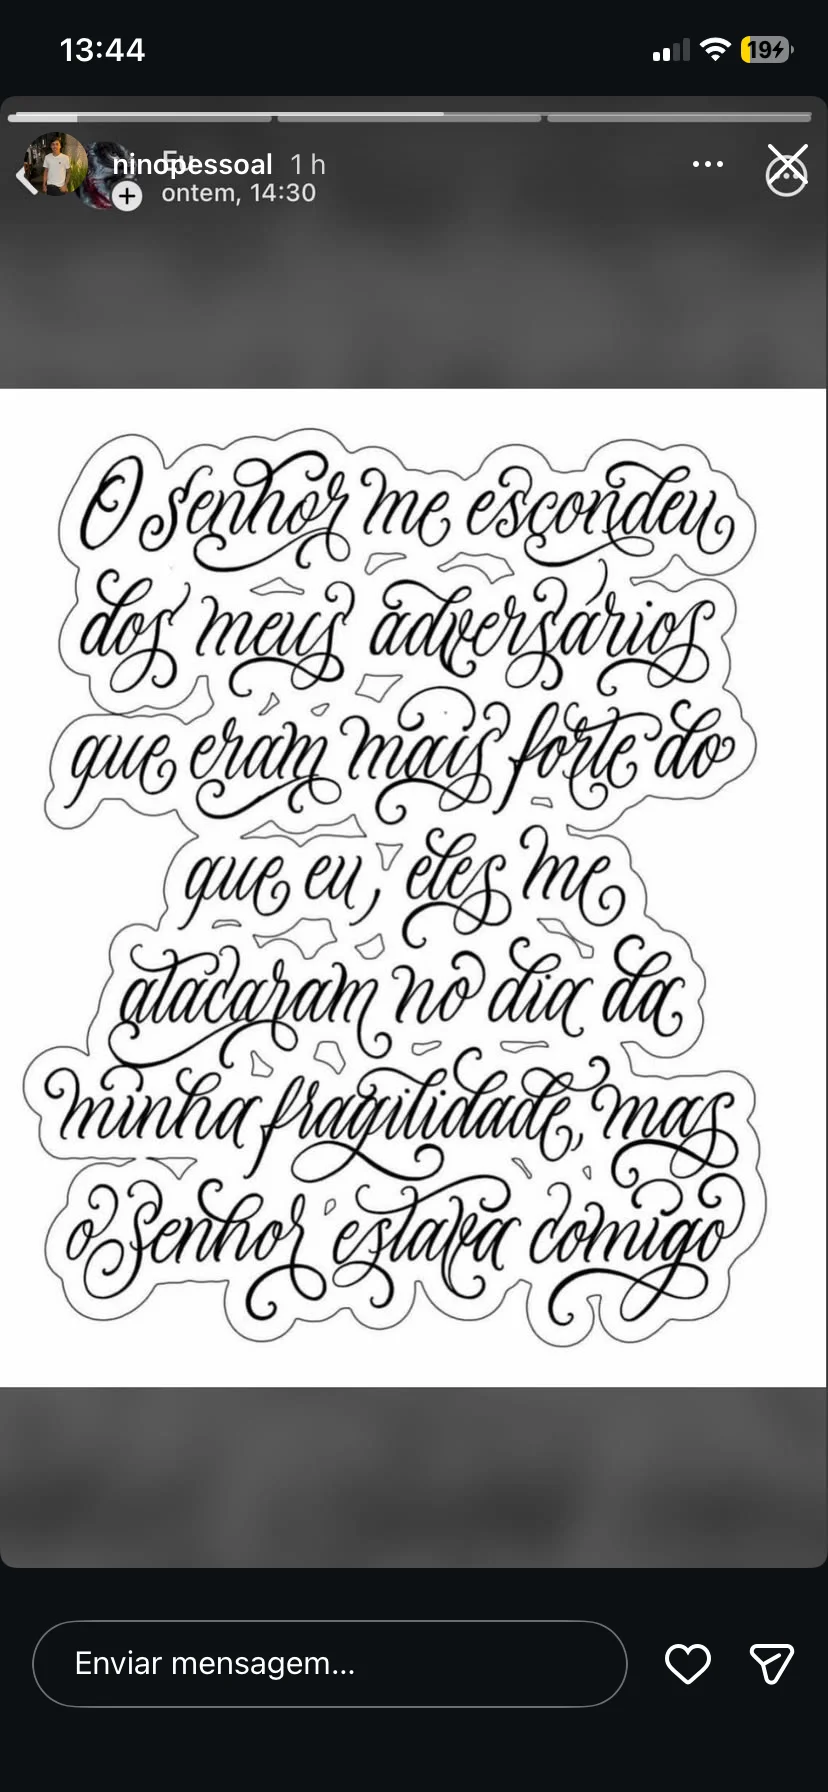 13:44
19
ninopessoal 1 h
Eu
ontem, 14:30
O Senhor me escondeu
dos meus adversários
que eram mais forte do
que eu, eles me
atacaram no dia da
minha fragilidade, mas
o Senhor estava comigo
Enviar mensagem...